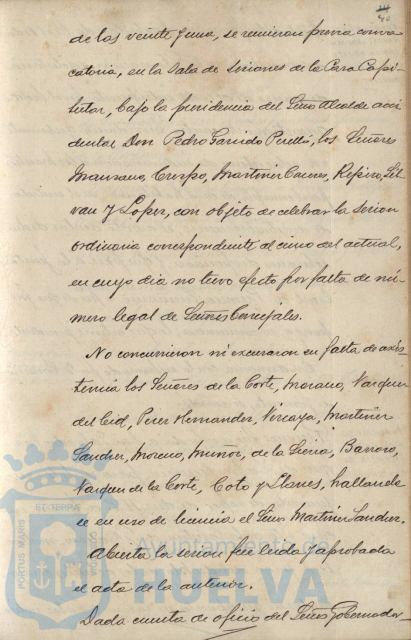 40
de las veinte y una, se reunieron previa convo
catoria, en la Sala de Sesiones de la Casa Capi-
tular, bajo la presidencia del Señor Alcalde acci
dental Don Pedro Garrido Perelló, los Señores
Manzano, Crespo, Martinez Cacenes, Rofero, Sil
van y Lopez, con objeto de celebrar la sesion
ordinaria correspondiente al cinco del actual,
en cuyo dia no tuvo efecto por falta de nú-
mero legal de Señores Concejales.
No concurrieron ni excusaron su falta de asis
tencia los Señores de la Corte, Moreno, Vazquez
del Cid, Perez Hernandez, Vizcaya, Martinez
Sanchez, Moreno, Muñoz, de la Sierra, Barroso,
Vazquez de la Corte, Coto y Llanes, hallando
se en uso de licencia el Señor Martinez Sanchez.
Abierta la sesion fué leida y aprobada
el acta de la anterior.
Dada cuenta de oficio del Señor Gobernador
PORTUS MARIS
ET TERRÆ
CUSTODIA
Ayuntamiento de
HUELVA